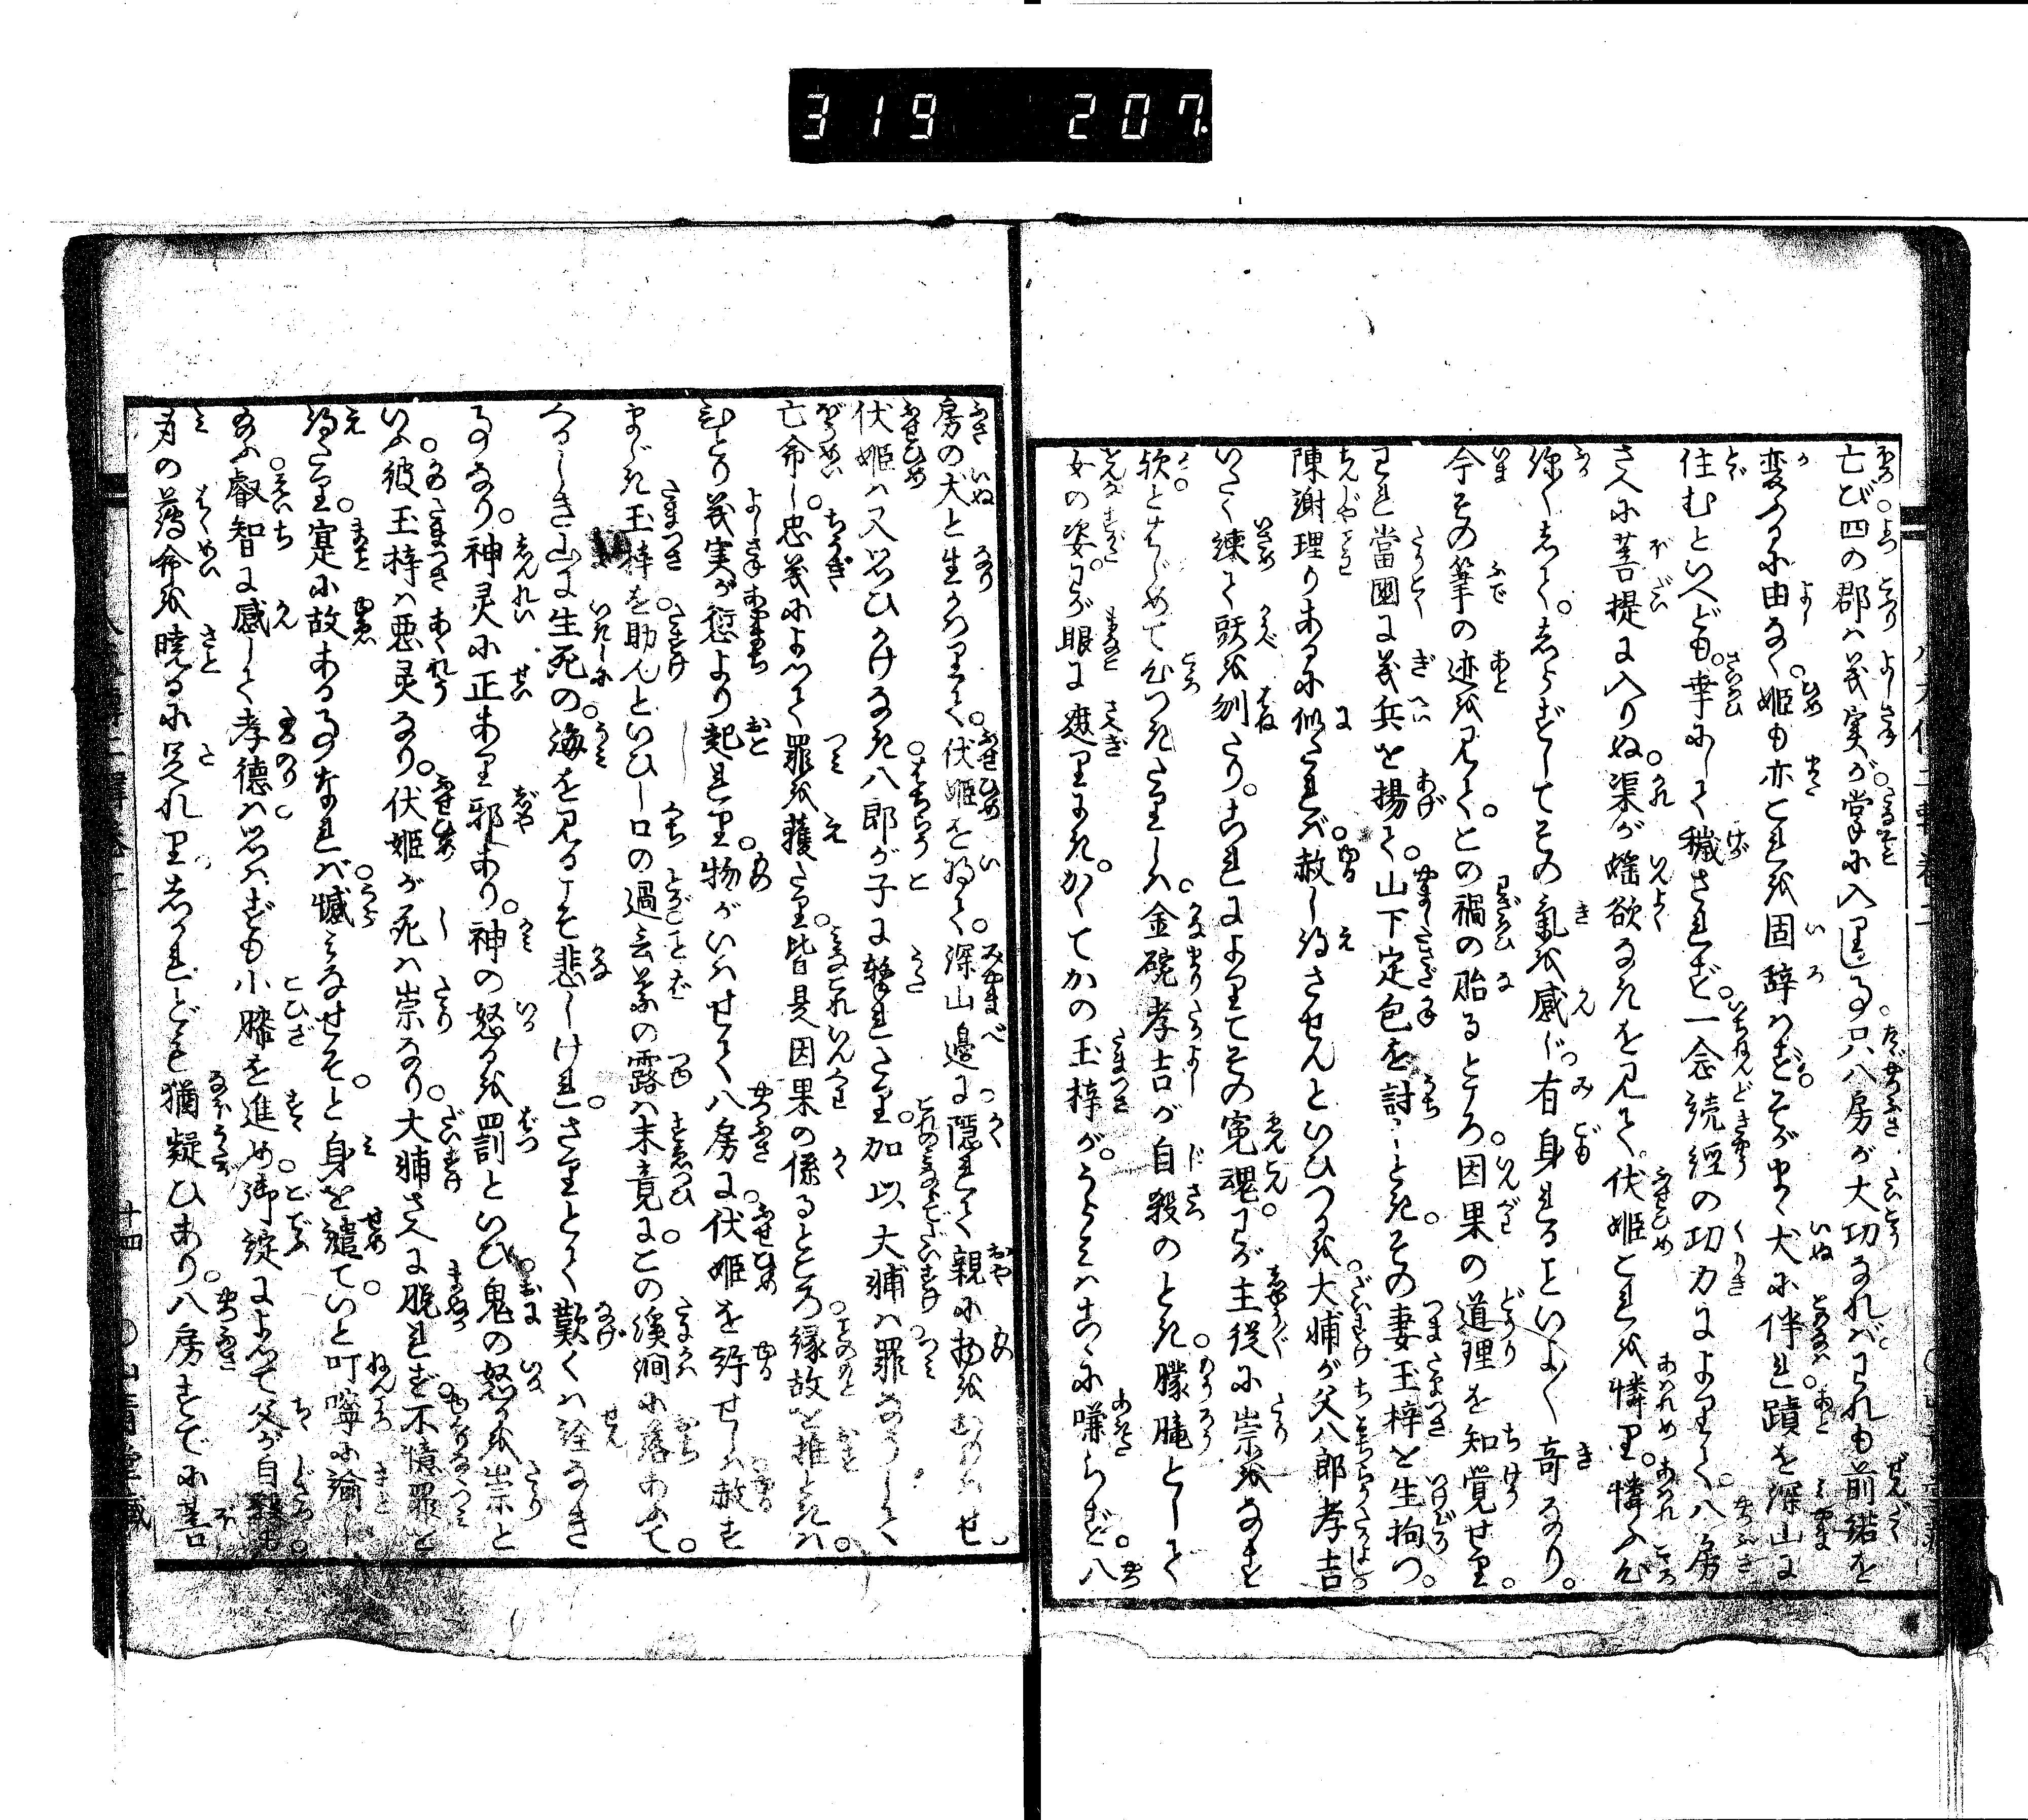 319 207
亡び四の郡ハ義実が掌に入里し事只八房が大功なれバわれも前諾を
変ふるに由なく。姫も亦これを固辞ハず。そがまゝ犬に伴れ蹟を深山に
住むといへども。幸にして穢されず。一念読經の功力によりて。八房
さへに菩提に入りぬ。渠が婬欲なきを見て。伏姫これを憐り。憐ふ心
をもて。その氣を感じて有身れることいよゝ奇なり。
今その筆の迹を見て。この禍の胎るところ。因果の道理を知覚せり。
われ當國に義兵を揚て。山下定包を討しとき。その妻玉梓を生拘つ。
陳謝理りあるに似たれバ。赦し得させんといひつるを。大輔が父八郎孝吉
いたく諫て頭を刎たり。これによりてその冤魂わが主従に崇をなすも
歟とはじめて心つきたりしハ。金碗孝吉が自殺のとき。朦朧として
女の姿。わが眼に遮りにき。かくてかの玉梓が。うらみハこゝに嗛らず。八
房の犬と生かハりて。伏姫を将て。深山邊に隠れて親に物をおもハせ
伏姫ハ又思ひかけなき八郎が子に撃れたり。加以大輔ハ罪なうして
亡命し。忠義によつて罪を獲たり。皆是因果の係るところ。縁故を推ときハ。
ひとり義実が愆より起れり。物がいはせて八房に伏姫を許せしハ。赦す
まじき玉梓を。助んといひし口の過言葉の露ハ末竟に。この溪澗に落あふて。
つるしき山に生死の。海を見るこそ悲しけれ。さりとて歎くハ詮なき
事なり。神灵に正あり邪あり。神の怒るを罰といひ。鬼の怒るを崇と
いふ。彼玉梓ハ悪灵なり。伏姫が死ハ崇なり。大輔さへに脱れず。不憶罪を
得たり。寔に故ある事なれバ。憾みなせそ。と身を譴ていと叮嚀に諭し
給ふ。叡智に感じて孝德ハ思ハずも小膝を進め。御諚によつて父が自殺も。
身の薄命を暁るに足れりしかれども猶疑ひあり。八房すでに菩
十四